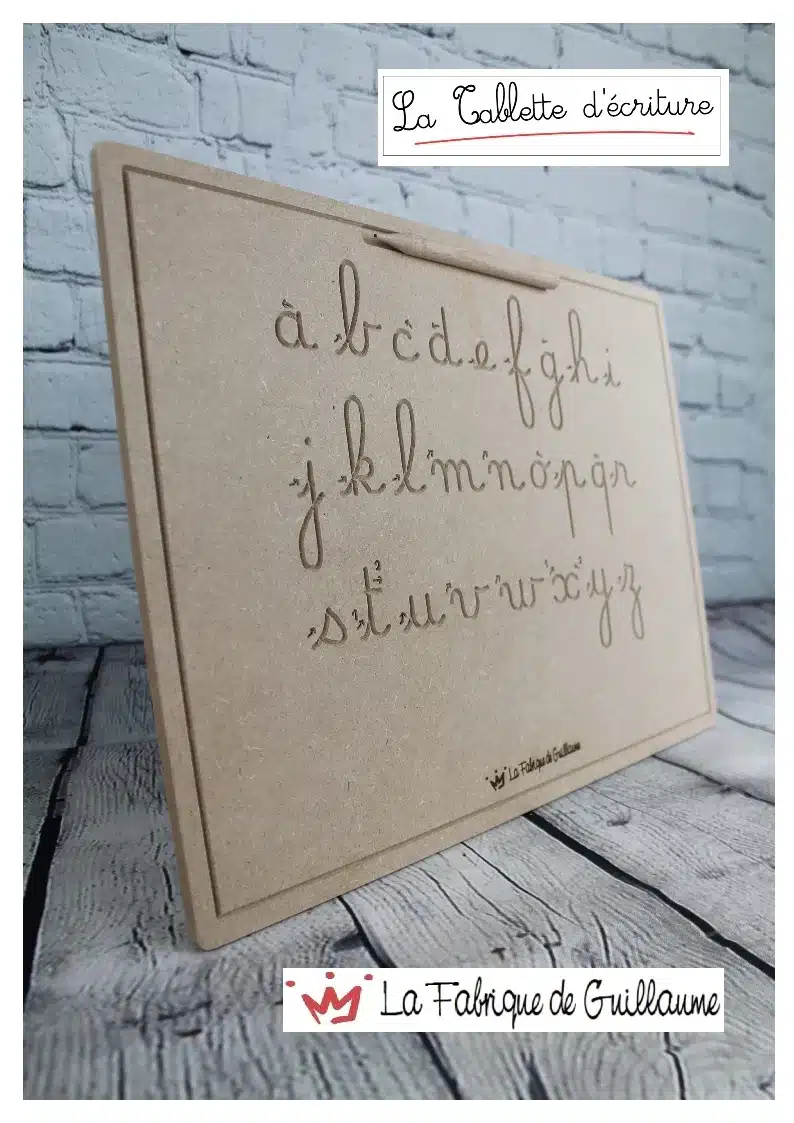 La Tablette d'écriture
a b c d e f g h i
j k l m n o p q r
1 2
s t u v w x y z
La Fabrique de Guillaume
La Fabrique de Guillaume